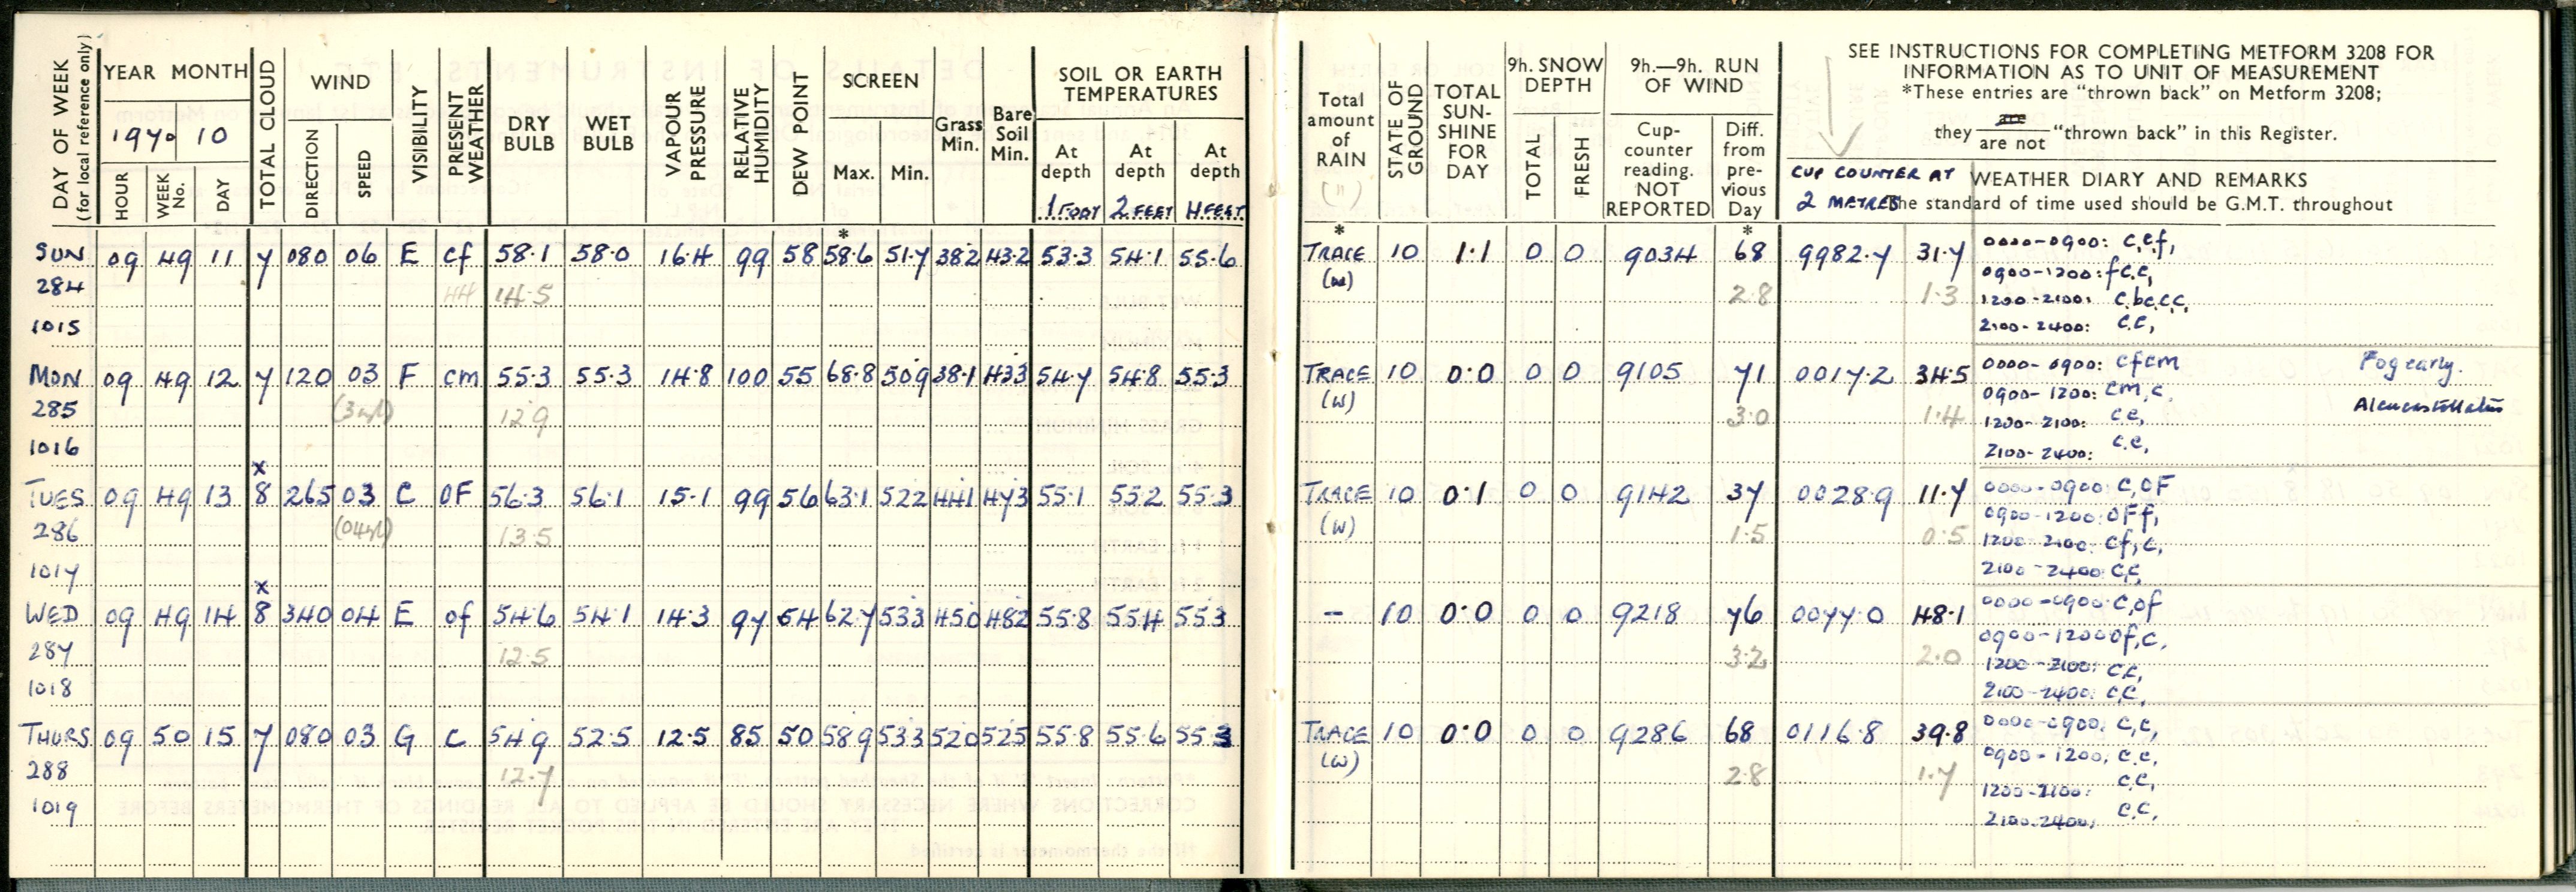 DAY OF WEEK (for local reference only)
YEAR MONTH
1970 10
HOUR WEEK No. DAY
TOTAL CLOUD
WIND
DIRECTION SPEED
VISIBILITY
PRESENT WEATHER
DRY BULB
WET BULB
VAPOUR PRESSURE
RELATIVE HUMIDITY
DEW POINT
SCREEN
Max. Min.
Grass Min.
Bare Soil Min.
SOIL OR EARTH TEMPERATURES
At depth At depth At depth
1 FOOT 2 FEET 4 FEET
Total amount of RAIN
(")
STATE OF GROUND
TOTAL SUN-SHINE FOR DAY
9h. SNOW DEPTH
TOTAL FRESH
9h.—9h. RUN OF WIND
Cup-counter reading. NOT REPORTED
Diff. from pre-vious Day
SEE INSTRUCTIONS FOR COMPLETING METFORM 3208 FOR
INFORMATION AS TO UNIT OF MEASUREMENT
*These entries are "thrown back" on Metform 3208;
they are / are not "thrown back" in this Register.
CUP COUNTER AT
2 METRES
WEATHER DIARY AND REMARKS
The standard of time used should be G.M.T. throughout
* *
SUN 09 49 11 7 080 06 E cf 58.1 58.0 16.4 99 58 58.6 51.7 38.2 43.2 53.3 54.1 55.6 TRACE 10 1.1 0 0 9034 68 9982.7 31.7 0000-0900: c,ef,
284 44 14.5 (w) 2.8 1.3 0900-1200: fc,c,
1200-2100: c,bc,c,c,
1015 2100-2400: c,c,
MON 09 49 12 7 120 03 F cm 55.3 55.3 14.8 100 55 68.8 50.9 38.1 43.3 54.7 54.8 55.3 TRACE 10 0.0 0 0 9105 71 0017.2 34.5 0000-0900: cfcm Fog early.
285 12.9 (W) 3.0 1.4 0900-1200: cm,c,
1200-2100: c,c,
1016 2100-2400: c,c,
x
TUES 09 49 13 8 265 03 C OF 56.3 56.1 15.1 99 56 63.1 52.2 44.1 47.3 55.1 55.2 55.3 TRACE 10 0.1 0 0 9142 37 0028.9 11.7 0000-0900: c,OF
286 13.5 (W) 1.5 0.5 0900-1200: OFf,
1200-2100: cf,c,
1017 2100-2400: c,c,
x
WED 09 49 14 8 340 04 E of 54.6 54.1 14.3 97 54 62.7 53.3 45.0 48.2 55.8 55.4 55.3 – 10 0.0 0 0 9218 76 0077.0 48.1 0000-0900: c,of
287 12.5 3.2 2.0 0900-1200 of,c,
1200-2100: c,c,
1018 2100-2400: c,c,
THURS 09 50 15 7 080 03 G C 54.9 52.5 12.5 85 50 58.9 53.3 52.0 52.5 55.8 55.6 55.3 TRACE 10 0.0 0 0 9286 68 0116.8 39.8 0000-0900: c,c,
288 12.7 (W) 2.8 1.7 0900-1200: c,c,
1200-2100: c,c,
1019 2100-2400: c,c,